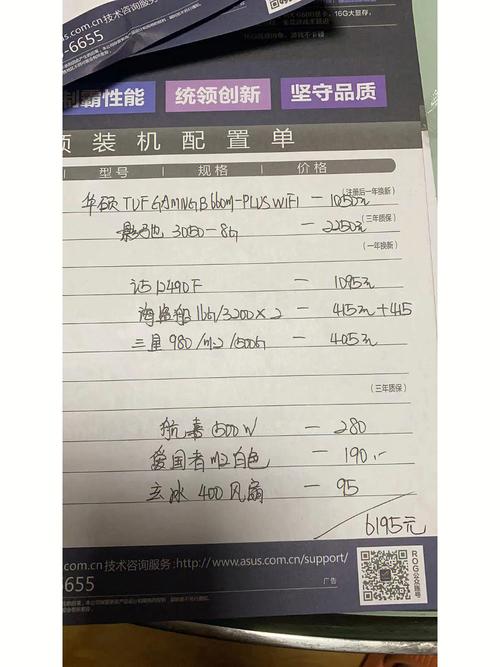 16G大显存,
asus.com.cn 技术咨询服务
-6655
制霸性能 统领创新 坚守品质
装机配置单
型号 规格 价格
(注册后一年换新)
华硕 TUF GAMING B660m-PLUS WIFI — 1050元
(三年质保)
影驰 3050-8G — 2250元
(一年换新)
12490F — 1095元
海盗船 16G/3200×2 — 415元+415
三星 980/m.2/500G — 405元
(三年质保)
航嘉 500W — 280
爱国者 m2 白色 — 190.-
玄冰 400 风扇 — 95
6195元
com.cn 技术咨询服务:http://www.asus.com.cn/support/
6655
广告
ROG公众账号